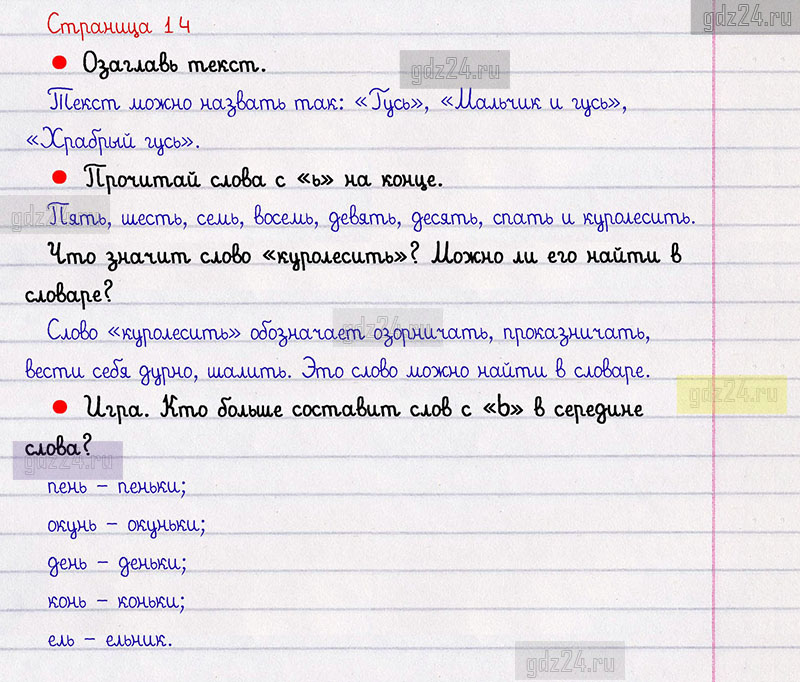 gdz24.ru
Страница 14
• Озаглавь текст.
gdz24.ru
Текст можно назвать так: «Гусь», «Мальчик и гусь»,
«Храбрый гусь».
• Прочитай слова с «ь» на конце.
gdz24.ru
Пять, шесть, семь, восемь, девять, десять, спать и куролесить.
Что значит слово «куролесить»? Можно ли его найти в
словаре?
gdz24.ru
Слово «куролесить» обозначает озорничать, проказничать,
вести себя дурно, шалить. Это слово можно найти в словаре.
gdz24.ru
• Игра. Кто больше составит слов с «ь» в середине
слова?
gdz24.ru
пень – пеньки;
окунь – окуньки;
день – деньки;
конь – коньки;
ель – ельник.
gdz24.ru